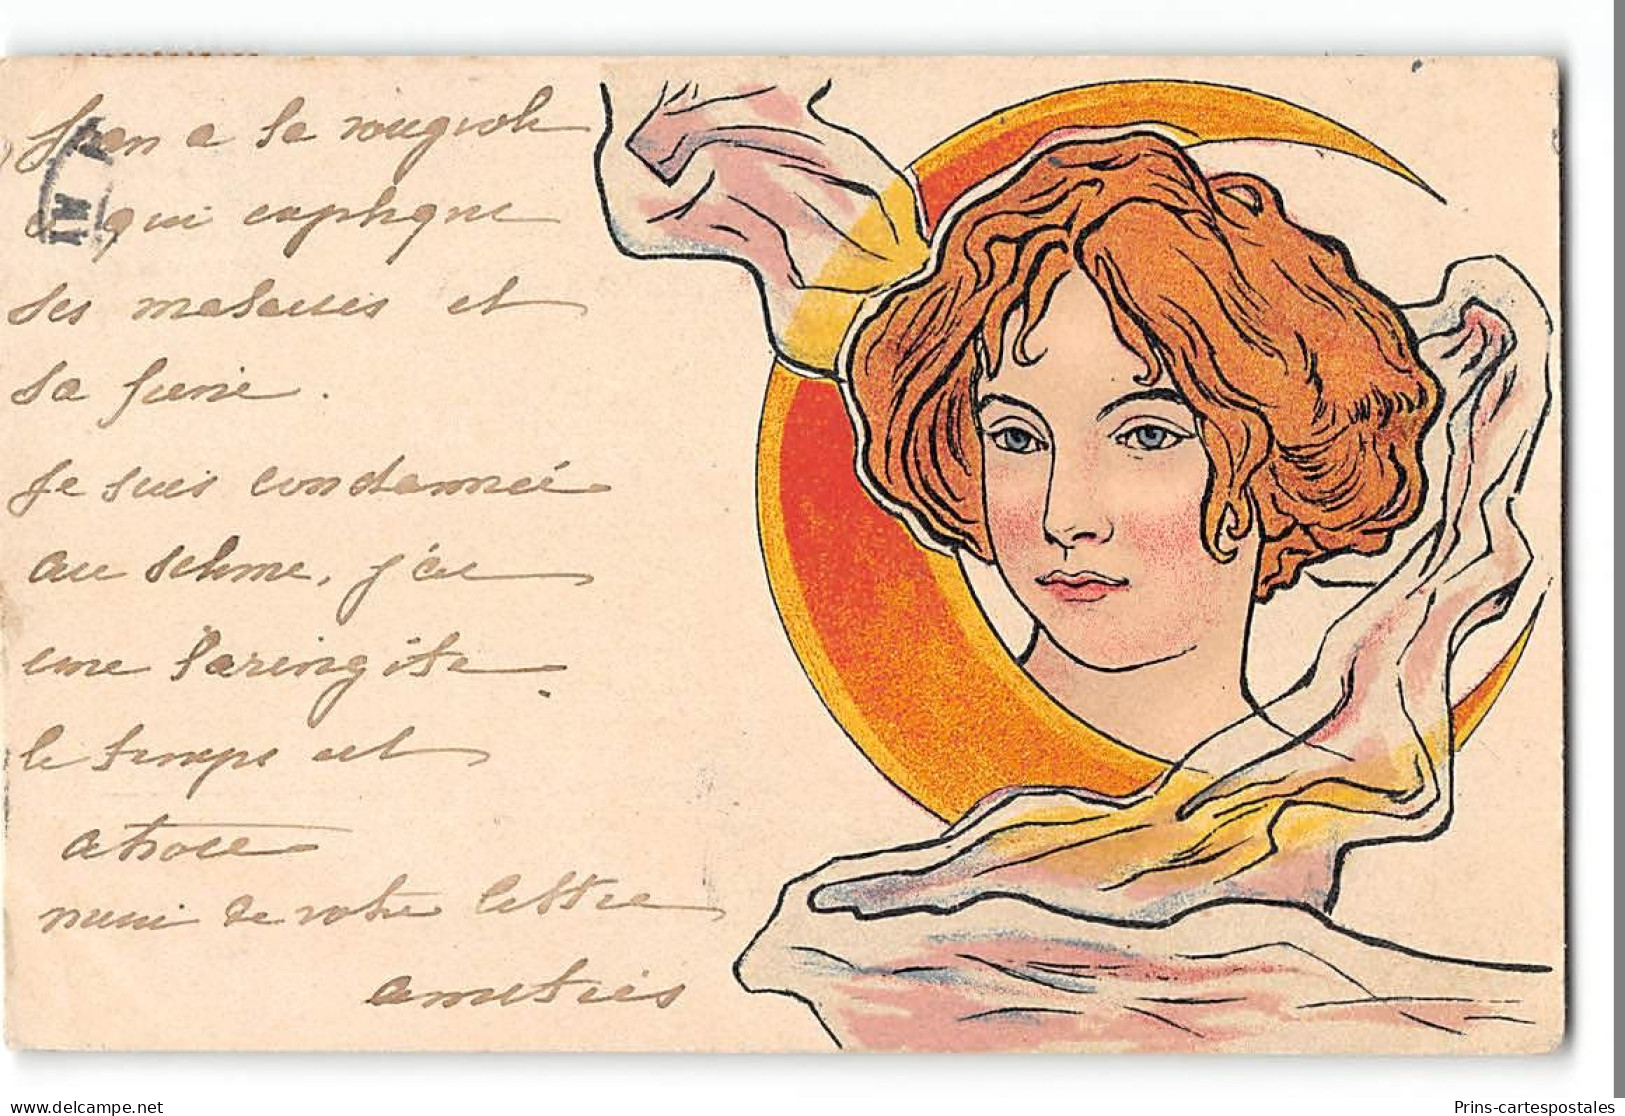 Jean a la rougeole
qui explique
ses malaises et
sa fièvre.
Je suis condamnée
au silence, j'ai
une laringite.
le temps est
atroce
merci de votre lettre
amitiés
delcampe.net
Prins-cartespostales